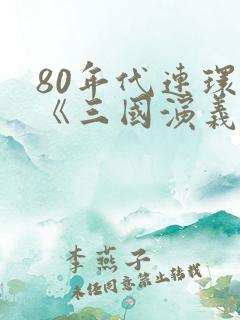 80年代連環
《三國演義
李燕子
未經同意禁止转載